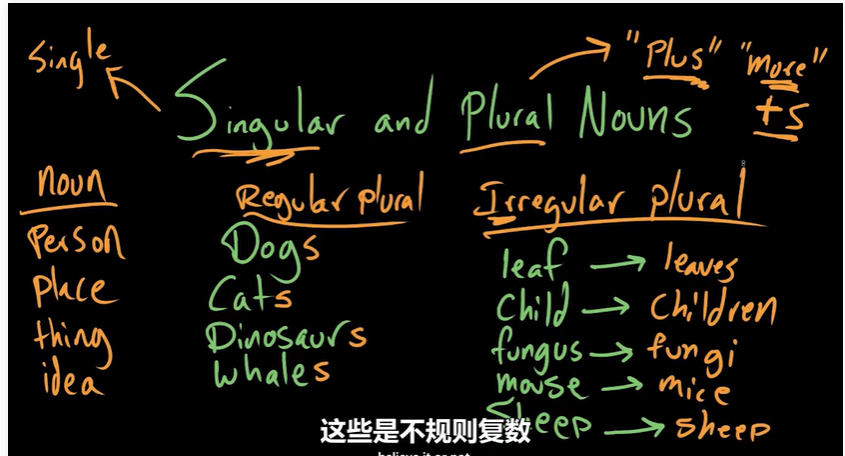 Single
"Plus" "more"
+s
Singular and Plural Nouns
noun
Person
Place
thing
idea
Regular plural
Dogs
Cats
Dinosaurs
Whales
Irregular plural
leaf → leaves
Child → Children
fungus → fungi
mouse → mice
Sheep → sheep
这些是不规则复数
believe it or not